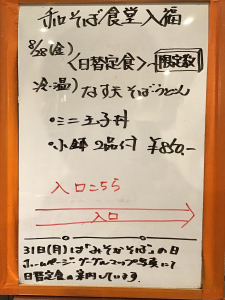 手打そば食堂 入福
8/28(金)
〈日替定食〉 限定数
冷・温) なす天そばうどん
・ミニ玉子丼
・小鉢2品付 ¥850.-
入口こちら
入口
31日(月)は「みそかそば」の日
ホームページ、グーグルマップ写真にて
日替定食の案内しています。